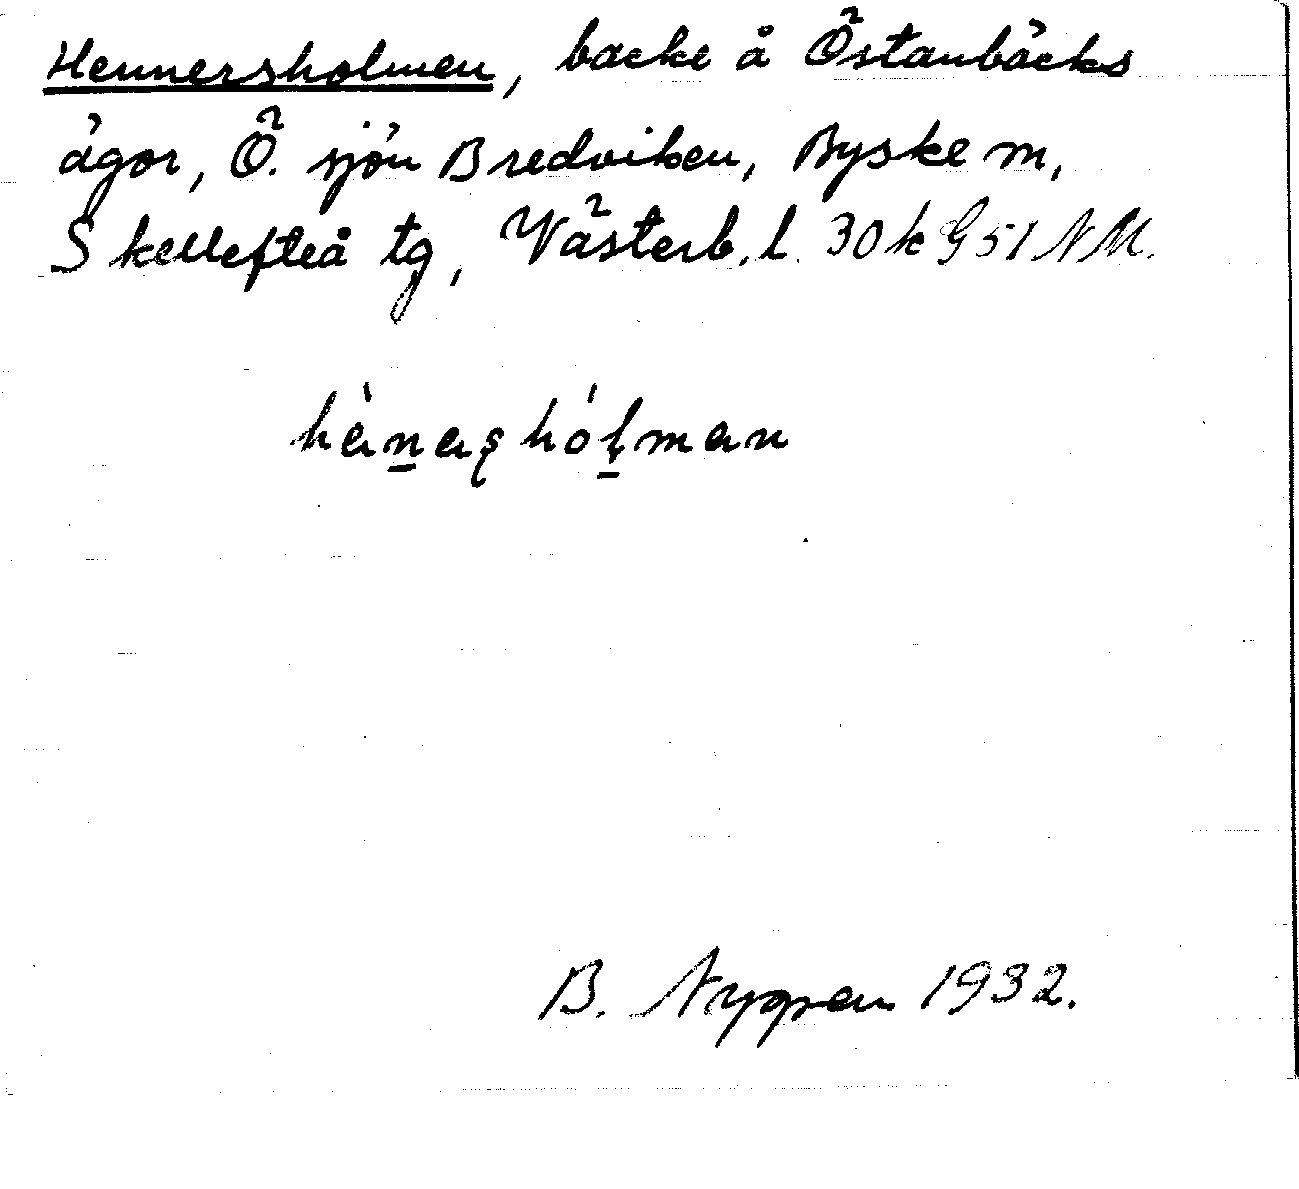 Hennersholmen, backe å Östanbäcks
ägor, Ö. sjön Bredviken, Byske m,
Skellefteå tg, Västerb. l. 30k G 51 NM.
B. Nygren 1932.